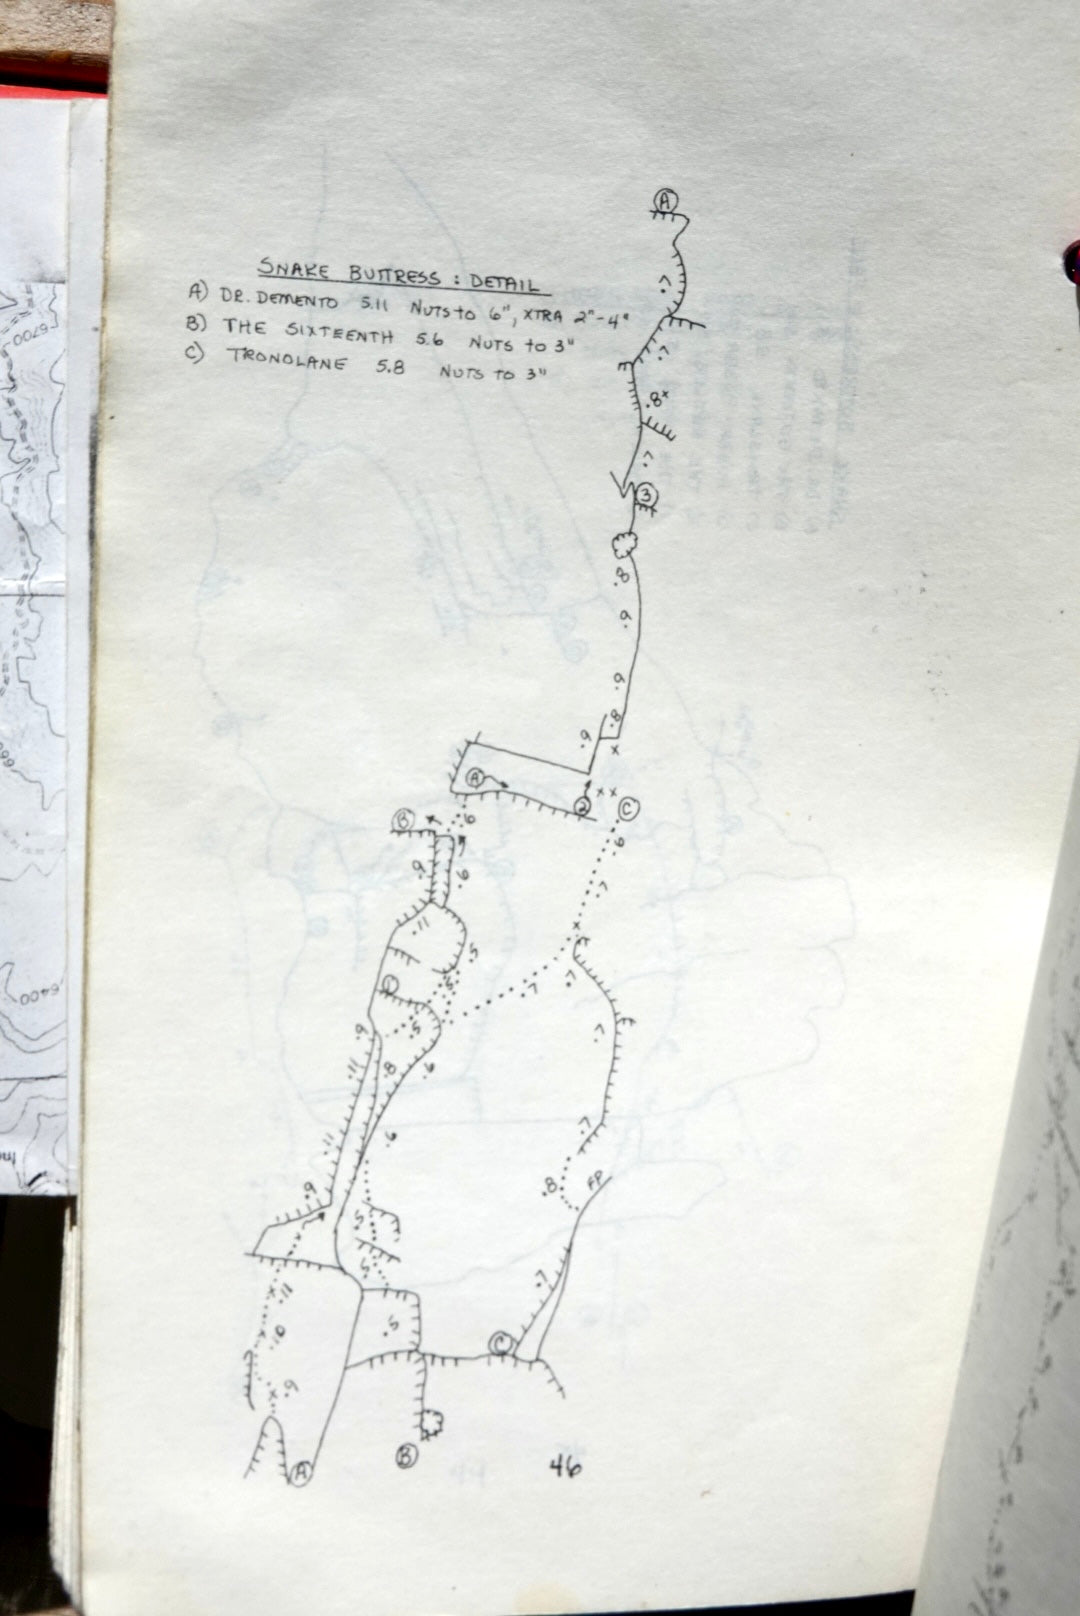 SNAKE BUTTRESS : DETAIL
A) DR. DEMENTO 5.11 NUTS to 6", XTRA 2"-4"
B) THE SIXTEENTH 5.6 NUTS TO 3"
C) TRONOLANE 5.8 NUTS TO 3"
A
.7
.7
.8x
.7
3
.8
.9
.9
.8
.9
x
A
2
x x
C
B
.6
.9
.9
.6
.7
.11
.5
x
.7
.7
1
.5
.5
.9
.7
.11
.8
.6
.6
.11
.7
.9
.8
FP
.5
.5
.7
.11
.10
.5
C
.9
B
A
46
6700
6400